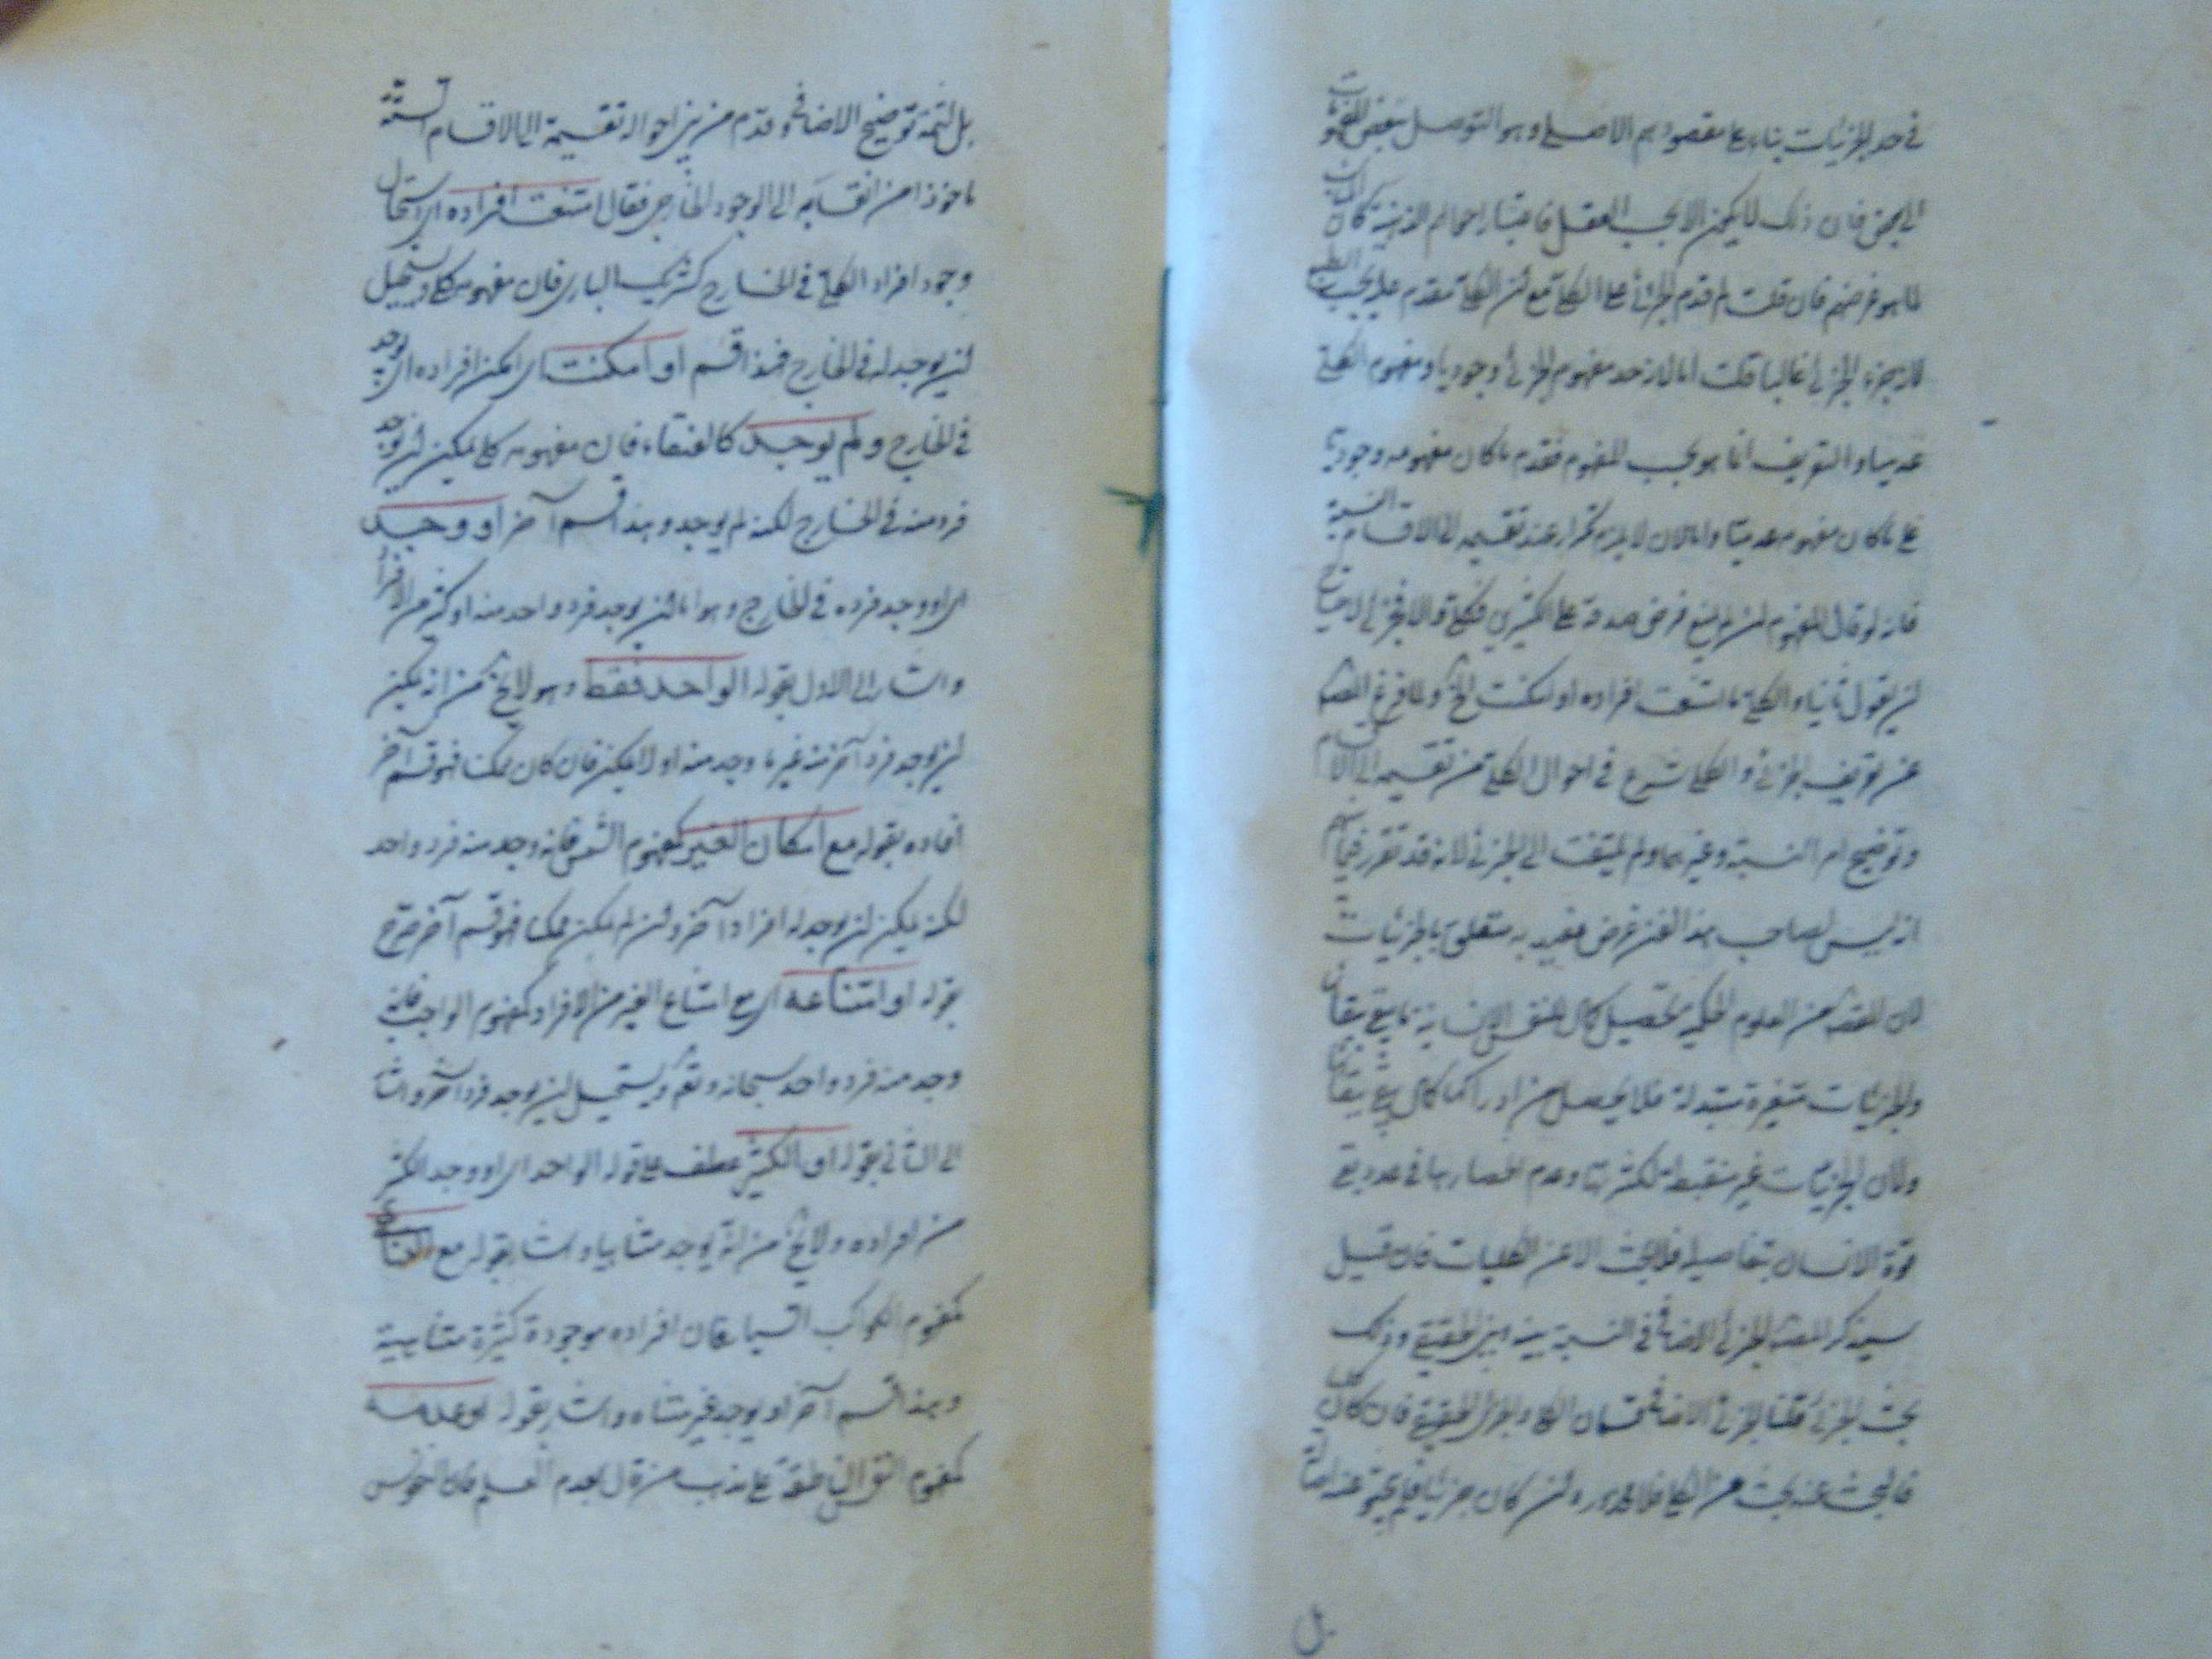 في حد الجزئيات بناء على مقصودهم الاصلي وهو التوصل ببعض المفهومات
الى بعض فان ذلك لا يمكن الا بحسب العقل فاعتبار احوالهم الذهنية كان
لما هو غرضهم فان قلت لم قدم الجزئي على الكلي مع ان الكلي مقدم عليه بحسب الطبع
لانه جزء الجزئي غالبا قلت اما لانه عد مفهوم الجزئي وجوديا ومفهوم الكلي
عدميا والتعريف انما هو بحسب المفهوم فقدم ما كان مفهومه وجوديا
على ما كان مفهومه عدميا واما لان لا يلزم تكرار عند تقسيمه الى الاقسام الستة
فانه لو قال المفهوم ان لم يمتنع فرض صدقه على الكثيرين فكلي والا فجزئي لاحتاج
ان يقول ثانيا والكلي ما امتنعت افراده او امكنت الخ ولما فرغ المصنف
عن تعريف الجزئي والكلي شرع في احوال الكلي من تقسيمه الى الاقسام
وتوضيح امر النسبة وغيرهما ولم يلتفت الى الجزئي لانه قد تقرر فيما بينهم
انه ليس لصاحب هذا الفن غرض معتد به متعلق بالجزئيات
لان المقصد من العلوم الحكمية تحصيل كمال للنفس الانسانية ما يبقى ببقائها
والجزئيات متغيرة متبدلة فلا يحصل من ادراكها كمال يبقى ببقائها
ولان الجزئيات غير منضبطة لكثرتها وعدم انحصارها في عدد يفي
قوة الانسان بتفاصيله فلا بحث الا عن الكليات فان قيل
سيذكر المصنف الجزئي الاضافي في النسبة بينه وبين الحقيقي وذلك
بحث الجزئي قلنا الجزئي الاضافي قسمان الكلي والجزئي الحقيقي فان كان كليا
فالبحث عنه بحث عن الكلي فلا محذور وان كان جزئيا فلم يبحث عنه اصالة
بل
بل لتتمة توضيح الاضافي وقدم من بين احواله تقسيمه الى الاقسام الستة
ماخوذا من انقسامه الى الوجود الخارجي فقال امتنعت افراده اي استحال
وجود افراد الكلي في الخارج كشريك الباري فان مفهومه كلي ويستحيل
ان يوجد له في الخارج فهذا قسم او امكنت اي امكن افراده اي يوجد
في الخارج ولم يوجد كالعنقاء فان مفهومه كلي يمكن ان يوجد
فرد منه في الخارج لكنه لم يوجد وهذا قسم آخر او وجد
اي او وجد فرده في الخارج وهو اما ان يوجد فرد واحد منه او كثير من الافراد
واشار الى الاول بقوله الواحد فقط وهو لا يخ من انه يمكن
ان يوجد فرد آخر منه غير ما وجد منه او لا يمكن فان كان يمكن فهو قسم آخر
افاده بقوله مع امكان الغير كمفهوم الشمس فانه وجد منه فرد واحد
لكنه يمكن ان يوجد له افراد آخر وان لم يكن ممكنا فهو قسم آخر صرح
بقوله او امتناعه اي مع امتناع الغير من الافراد كمفهوم الواجب فانه
وجد منه فرد واحد سبحانه وتعالى ويستحيل ان يوجد فرد آخر واشار
الى الثاني بقوله او الكثير عطف على قوله الواحد اي او وجد الكثير
من افراده ولا يخ من انه يوجد متناهيا واشار بقوله مع التناهي
كمفهوم الكواكب السيارة فان افراده موجودة كثيرة متناهية
وهذا قسم آخر او يوجد غير متناه واشار بقوله او عدمه
كمفهوم النفس الناطقة على مذهب من قال بقدم العالم فان النفوس